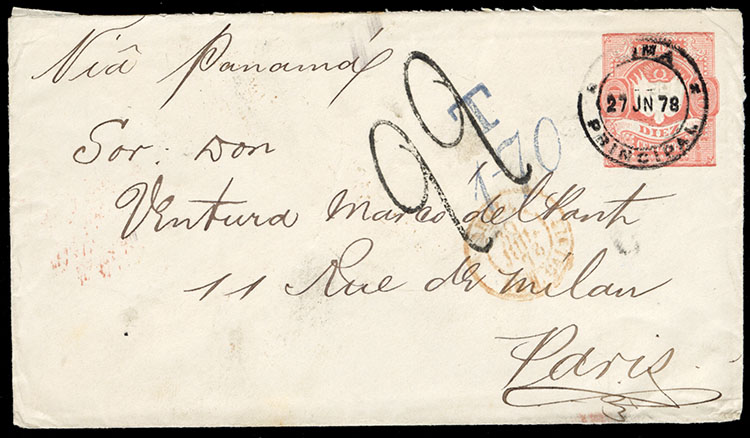 Viâ Panamá
LIMA
27 JN 78
PRINCIPAL
DIEZ
22
T
170
Sor. Don
Ventura Marco del Pont
11 Rue de Milan
Paris